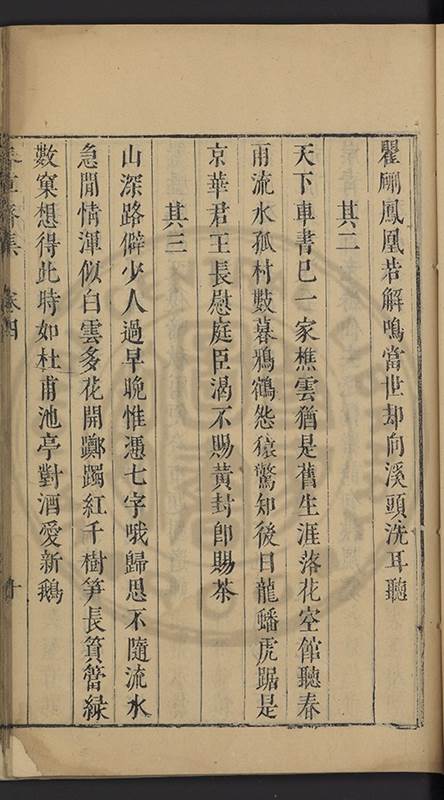 瞿瑡鳳凰若解鳴當世却向溪頭洗耳聽
其二
天下車書已一家樵雲猶是舊生涯落花空館聽春
雨流水孤村數暮鴉鶴怨猿驚知後日龍蟠虎踞是
京華君王長慰庭臣渴不賜黃封卽賜茶
其三
山深路僻少人過早晚惟憑七字哦歸思不隨流水
急閒情渾似白雲多花開躑躅紅千樹笋長篔簹綠
數窠想得此時如杜甫池亭對酒愛新鵝
集 卷四 十